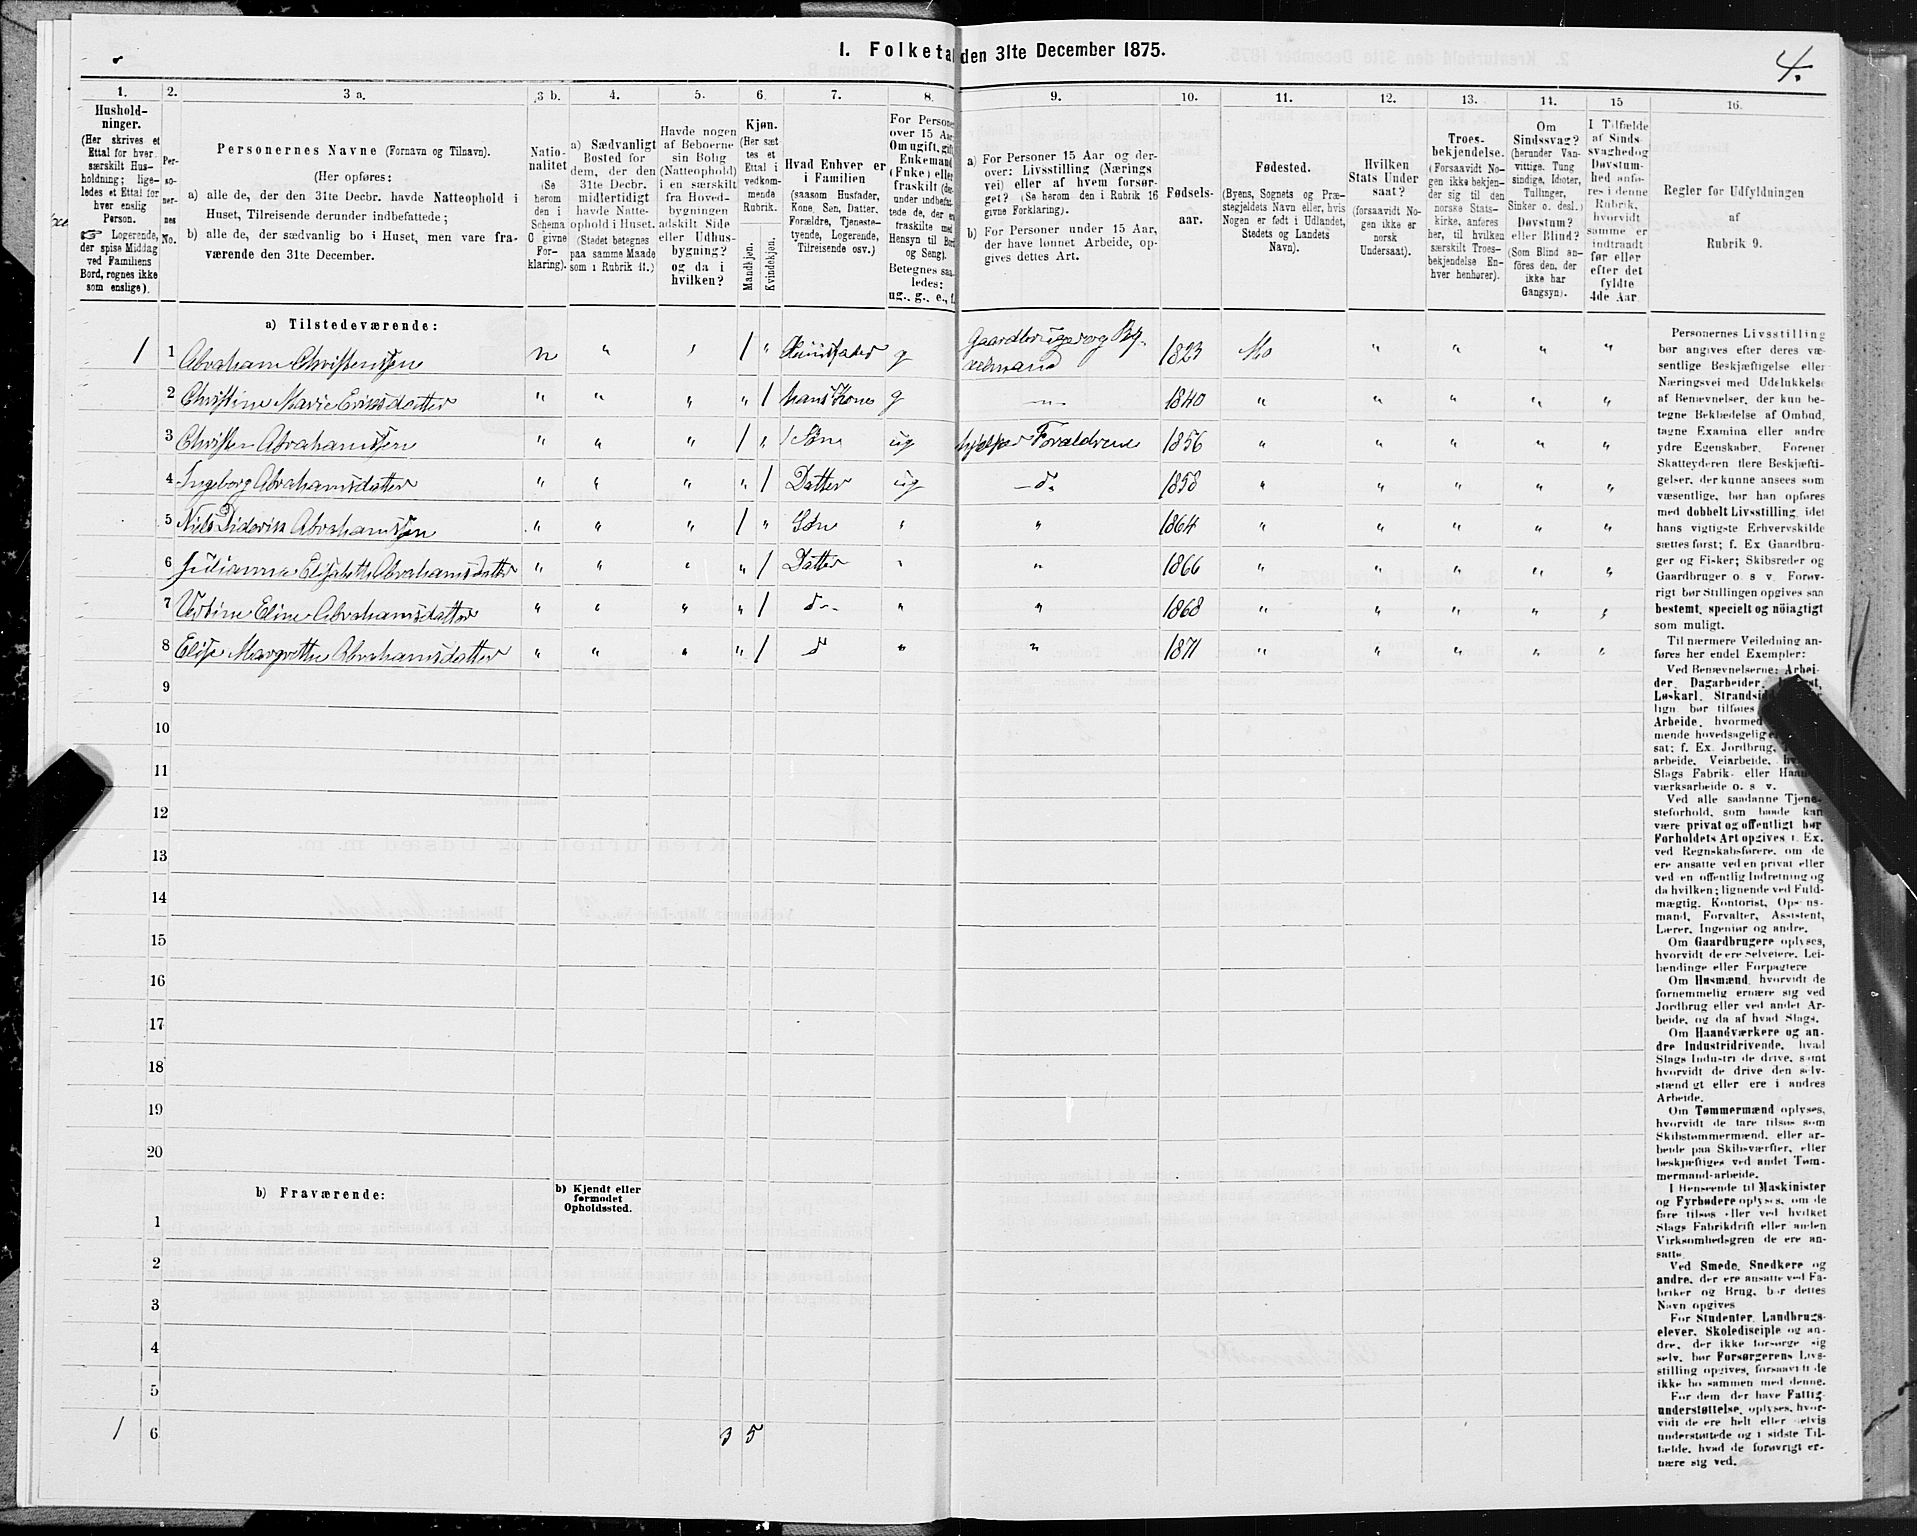 1. Folketa den 31te December 1875.
4.
1. 2. 3 a. 3 b. 4. 5. 6. 7. 8. 9. 10. 11. 12. 13. 14. 15 16.
Hushold-
ninger.
(Her skrives et
Ettal for hver
særskilt Hus-
holdning; lige-
ledes et Ettal for
hver enslig
Person.
☞ Logerende,
der spise Middag
ved Familiens
Bord, regnes ikke
som enslige).
Per-
so-
ner-
nes
No.
Personernes Navne (Fornavn og Tilnavn).
(Her opføres:
a) alle de, der den 31te Decbr. havde Natteophold i
Huset, Tilreisende derunder indbefattede;
b) alle de, der sædvanlig bo i Huset, men vare fra-
værende den 31te December.
Natio-
nalitet
(Se
herom
den i
Schema
C givne
For-
klaring).
a) Sædvanligt
Bosted for
dem, der den
31te Decbr.
midlertidigt
havde Natte-
ophold i Huset.
(Stedet betegnes
paa samme Maade
som i Rubrik 11.)
Havde nogen
af Beboerne
sin Bolig
(Natteophold)
i en særskilt
fra Hoved-
bygningen
adskilt Side
eller Udhus-
bygning?
og da i
hvilken?
Kjøn.
(Her sæt
tes et
Ettal i
vedkom-
mende
Rubrik.
Mandkjøn.
Kvindekjøn.
Hvad Enhver er
i Familien
(saasom Husfader,
Kone, Søn, Datter,
Forældre, Tjeneste-
tyende, Logerende,
Tilreisende osv.)
For Persone
over 15 Aar
Om ugift, gift
Enkemand
(Enke) eller
fraskilt (der-
under indbefat-
tede de, der er
fraskilte med
Hensyn til Bord
og Seng).
Betegnes saa-
ledes:
ug., g., e., f.
a) For Personer 15 Aar og der-
over: Livsstilling (Nærings
vei) eller af hvem forsør-
get? (Se herom den i Rubrik 16
givne Forklaring).
b) For Personer under 15 Aar,
der have lønnet Arbeide, op-
gives dettes Art.
Fødsels-
aar.
Fødested.
(Byens, Sognets og Præ-
stegjeldets Navn eller, hvis
Nogen er født i Udlandet,
Stedets og Landets
Navn).
Hvilken
Stats Under
saat?
(forsaavidt No-
gen ikke er
norsk
Undersaat).
Troes-
bekjendelse.
(Forsaavidt No-
gen ikke bekjen-
der sig til den
norske Stats-
kirke, anføres
her, til hvilken
særskilt Troes-
bekjendelse En-
hver henhører).
Om
Sindssvag?
(herunder Van-
vittige, Tung
sindige, Idioter,
Tullinger,
Sinker o. desl.)
Døvstum?
eller Blind?
(Som Blind an-
føres den, der
ikke har
Gangsyn).
I Tilfælde
af Sinds-
svaghed og
Døvstum-
hed anfø-
res i denne
Rubrik,
hvorvidt
samme er
indtraadt
før eller
efter det
fyldte
4de Aar.
Regler for Udfyldningen
af
Rubrik 9.
a) Tilstedeværende:
1 1 Abraham Christensen n " " 1 " Huusfader g Gaardbruger og By- 1823 Mo " " " "
2 Christine Marie Eriksdatter " " " " 1 hans Kone g —"— 1840 " " " " "
3 Christen Abrahamsen " " " 1 " Søn ug hjelper Forældrene 1856 " " " " "
4 Ingeborg Abrahamsdatter " " " " 1 Datter ug — d. 1858 " " " " "
5 Niels Diderik Abrahamsen " " " 1 " Søn " " 1864 " " " " "
6 Julianna Elisabeth Abrahamsdatter " " " " 1 Datter " " 1866 " " " " "
7 Eline Abrahamsdatter " " " " 1 d— " " 1868 " " " " "
8 Elise Margrethe Abrahamsdatter " " " " 1 d " " 1871 " " " " "
9
10
11
12
13
14
15
16
17
18
19
20
b) Fraværende:
b) Kjendt eller
formodet
Opholdssted.
1
2
3
4
5
1 6 3 5
Personernes Livsstilling
bør angives efter deres væ-
sentlige Beskjæftigelse eller
Næringsvei med Udelukkelse
af Benævnelser, der kun be-
tegne Beklædelse af Ombud,
tagne Examina eller andre
ydre Egenskaber. Forener
Skatteyderen flere Beskjæfti-
gelser, der kunne ansees som
væsentlige, bør han opføres
med dobbelt Livsstilling, idet
hans vigtigste Erhvervskilde
sættes først; f. Ex Gaardbru-
ger og Fisker; Skibsreder og
Gaardbruger o. s v. Forøv-
rigt bør Stillingen opgives saa
bestemt, specielt og nöiagtigt
som muligt.
Til nærmere Veiledning an-
føres her endel Exempler:
Ved Benævnelserne: Arbei-
der, Dagarbeider,
Løskarl, Strandsid
lign. bør tilføres
Arbeide, hvormed
mende hovedsagelig er
sat; f. Ex. Jordbrug,
arbeide, Veiarbeide,
Slags Fabrik- eller Haand
værksarbeide o. s v.
Ved alle saadanne Tjene-
steforhold, som baade kan
være privat og offentligt bør
Forholdets Art opgives f. Ex.
ved Regnskabsførere, om de
ere ansatte ved en privat eller
ved en offentlig Indretning og
da hvilken; lignende ved Fuld-
mægtig, Kontorist, Opsyns-
mand, Forvalter, Assistent,
Lærer, Ingeniør og andre.
Om Gaardbrugere oplyses,
hvorvidt de ere Selveiere, Lei-
lændinge eller Forpagtere
Om Husmænd, hvorvidt de
fornemmelig ernære sig ved
Jordbrug eller ved andet Ar-
beide, og da af hvad Slags.
Om Haandværkere og an-
dre Industridrivende, hvad
Slags Industri de drive, samt
hvorvidt de drive den selv-
stændigt eller ere i andres
Arbeide.
Om Tømmermænd oplyses,
hvorvidt de fare tilsøs som
Skibstømmermænd, eller ar-
beide paa Skibsværfter, eller
beskjæftiges ved andet Tøm-
mermand-arbeide.
I Henseende til Maskinister
og Fyrbødere oplyses, om de
fare tilsøs eller ved hvilket
Slags Fabrikdrift eller anden
Virksomhedsgren de ere an-
satte.
Ved Smede, Snedkere og
andre, der ere ansatte ved Fa-
briker og Brug, bør dettes
Navn opgives
For Studenter, Landbrugs-
elever, Skoledisciple og an-
dre, der ikke forsørge sig
selv, bør Forsørgerens Livs-
stilling opgives, forsaavidt de
ikke bo sammen med denne.
For dem, der have Fattig-
understøttelse, oplyses, hvor-
vidt de ere helt eller delvis
understøttede og i sidste Til-
fælde, hvad de forøvrigt er-
nære sig ved.